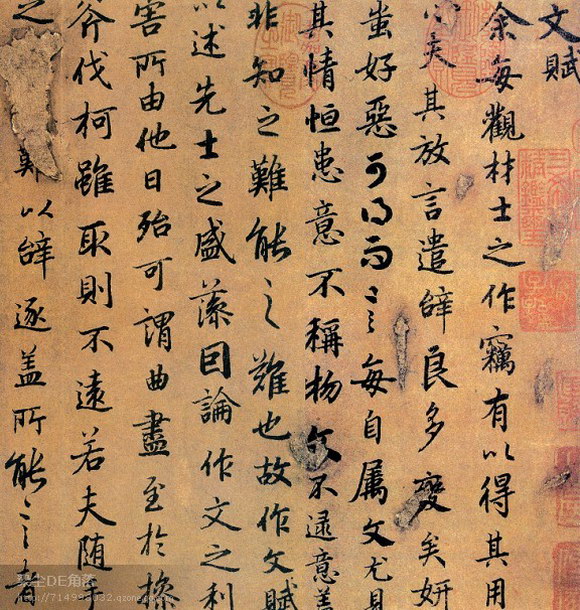 文賦
余每觀材士之作竊有以得其用
心矣其放言遣辭良多變矣妍
蚩好惡可得而言每自属文尤見
其情恒患意不稱物文不逮意盖
非知之難能之難也故作文賦
以述先士之盛藻因論作文之利
害所由他日殆可謂曲盡至於操
斧伐柯雖取則不遠若夫随
之難以辭逐盖所能言者